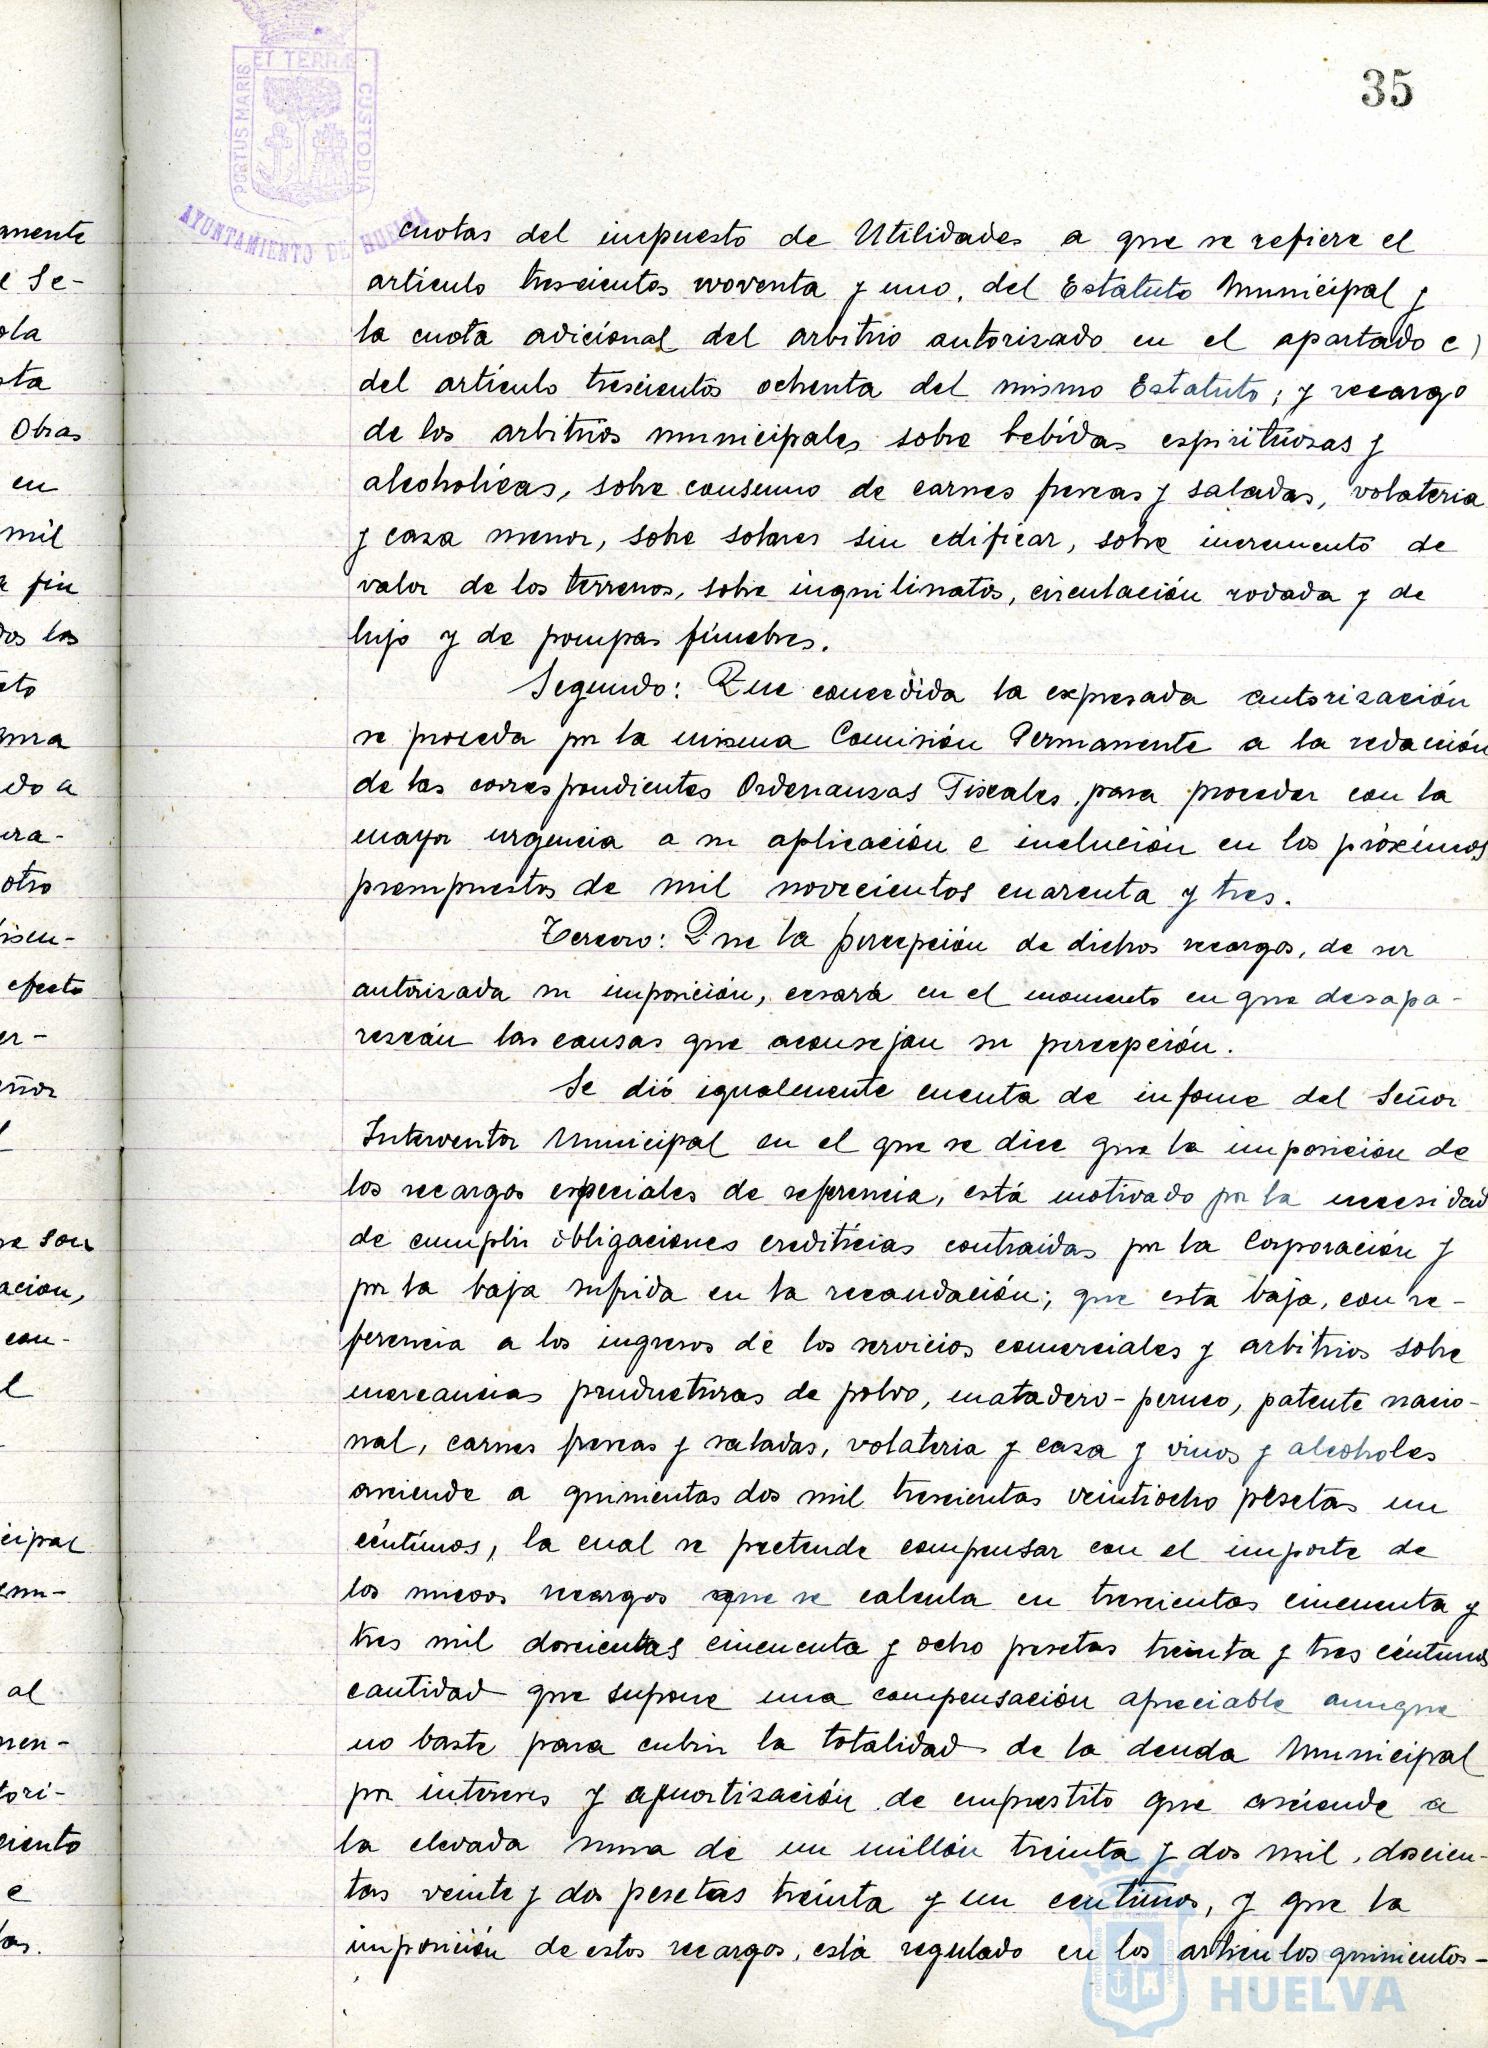 35
ET TERRÆ
PORTUS MARIS
CUSTODIA
AYUNTAMIENTO DE HUELVA
cuotas del impuesto de Utilidades a que se refiere el
artículo trescientos noventa y uno, del Estatuto Municipal y
la cuota adicional del arbitrio autorizado en el apartado c)
del artículo trescientos ochenta del mismo Estatuto; y recargo
de los arbitrios municipales sobre bebidas espirituosas y
alcoholicas, sobre consumo de carnes frescas y saladas, volateria
y caza menor, sobre solares sin edificar, sobre incremento de
valor de los terrenos, sobre inquilinatos, circulación rodada y de
lujo y de pompas fúnebres.
Segundo: Que concedida la expresada autorización
se proceda por la misma Comisión Permanente a la redacción
de las correspondientes Ordenanzas Fiscales, para proceder con la
mayor urgencia a su aplicación e inclución en los próximos
presupuestos de mil novecientos cuarenta y tres.
Tercero: Que la percepción de dichos recargos, de ser
autorizada su imposición, cesará en el momento en que desapa-
rescan las causas que aconsejan su percepción.
Se dió igualmente cuenta de informe del Señor
Interventor Municipal en el que se dice que la imposición de
los recargos especiales de referencia, está motivado por la necesidad
de cumplir obligaciones crediticias contraidas por la Corporación y
por la baja sufrida en la recaudación; que esta baja, con re-
ferencia a los ingresos de los servicios comerciales y arbitrios sobre
mercancias productoras de polvo, matadero-perneo, patente nacio-
nal, carnes frescas y saladas, volateria y caza y vinos y alcoholes
asciende a quinientas dos mil trescientas veintiocho pesetas un
céntimos, la cual se pretende compensar con el importe de
los nuevos recargos que se calcula en trescientas cincuenta y
tres mil doscientas cincuenta y ocho pesetas treinta y tres céntimos
cantidad que supone una compensación apreciable aunque
no baste para cubrir la totalidad de la deuda Municipal
por intereses y amortización de emprestito que asciende a
la elevada suma de un millón treinta y dos mil, doscien-
tas veinte y dos pesetas treinta y un centimos, y que la
imposición de estos recargos, está regulado en los articulos quinientos-
HUELVA